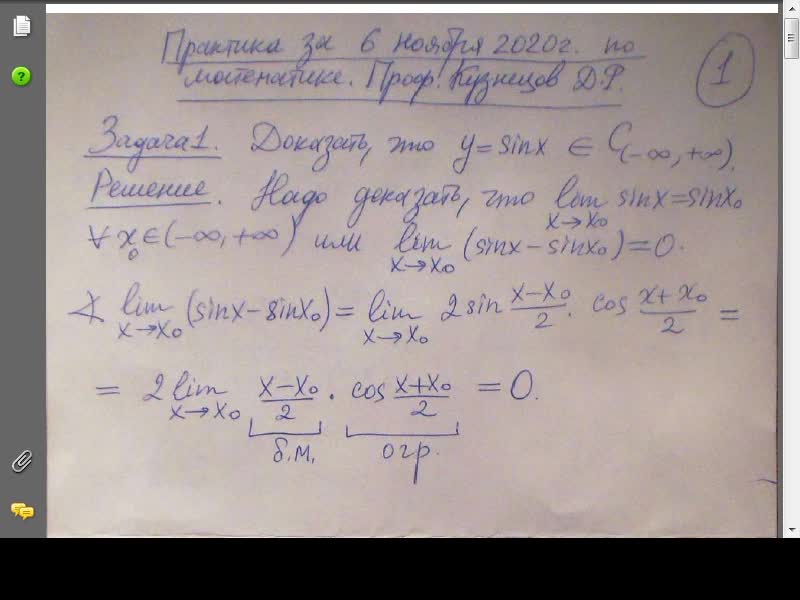 Практика за 6 ноября 2020г. по
математике. Проф. Кузнецов Д.Ф.
1
Задача 1. Доказать, что y = sinx ∈ C(-∞, +∞).
Решение. Надо доказать, что lim x→x₀ sinx = sinx₀
∀ x₀ ∈ (-∞, +∞) или lim x→x₀ (sinx - sinx₀) = 0.
∢ lim x→x₀ (sinx - sinx₀) = lim x→x₀ 2 sin (x-x₀)/2 · cos (x+x₀)/2 =
= 2 lim x→x₀ (x-x₀)/2 · cos (x+x₀)/2 = 0.
б.м. огр.